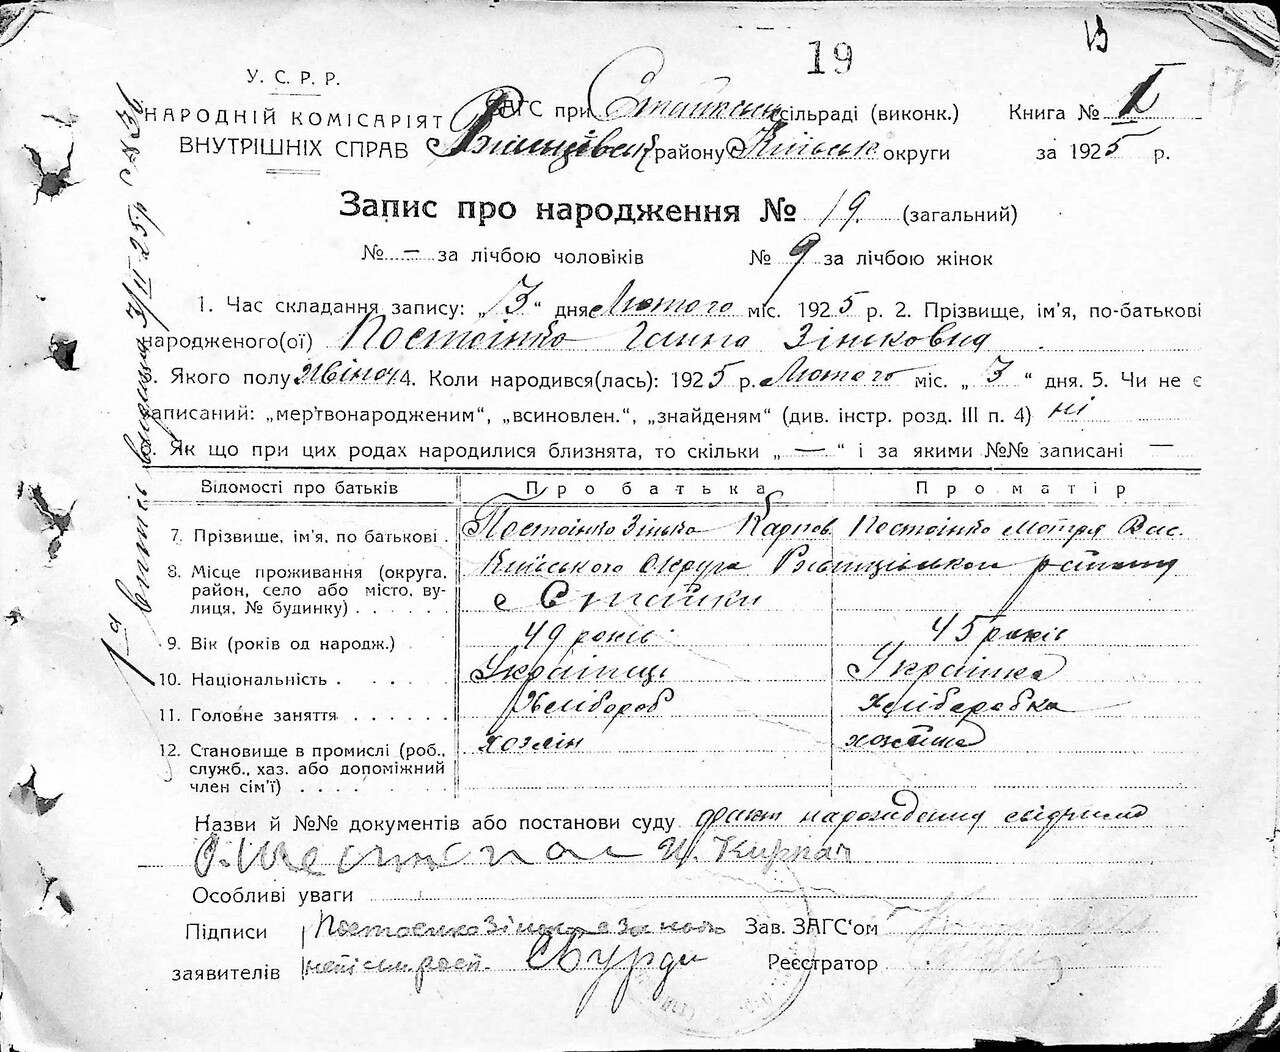 19
У. С. Р. Р.
НАРОДНІЙ КОМІСАРІЯТ
ВНУТРІШНІХ СПРАВ
ЗАГС при Стайкськ сільраді (виконк.)
району Київськ округи
Книга № I
за 1925 р.
Запис про народження № 19. (загальний)
№ — за лічбою чоловіків № 9 за лічбою жінок
1. Час складання запису: „3“ дня Лютого міс. 1925 р. 2. Прізвище, ім'я, по-батькові
народженого(ої) Постоінко Ганна Зіньковна
. Якого полу жіноч 4. Коли народився(лась): 1925 р. Лютого міс. „3“ дня. 5. Чи не є
записаний: „мертвонародженим“, „всиновлен.“, „знайденям“ (див. інстр. розд. III п. 4) ні
. Як що при цих родах народилися близнята, то скільки „ — “ і за якими №№ записані —
Відомості про батьків Про батька Про матір
7. Прізвище, ім'я, по батькові . Постоінко Зінько Карпов. Постоінко Мотря Вас.
8. Місце проживання (округа, район, село або місто, вулиця, № будинку) . . . . . Київського Округа району
с Стайки
9. Вік (років од народж.) 49 років 45 років
10. Національність . . . . . . Українець Українка
11. Головне заняття . . . . . . Хлібороб Хліборобка
12. Становище в промислі (роб., служб., хаз. або допоміжний член сім'ї) . . . . . . . хозяін хозяйка
Назви й №№ документів або постанови суду факт нарождения свідчимо
Особливі уваги
Підписи Постоенко Зінько а за його Зав. ЗАГС'ом
заявителів непісьм. рост. Реєстратор